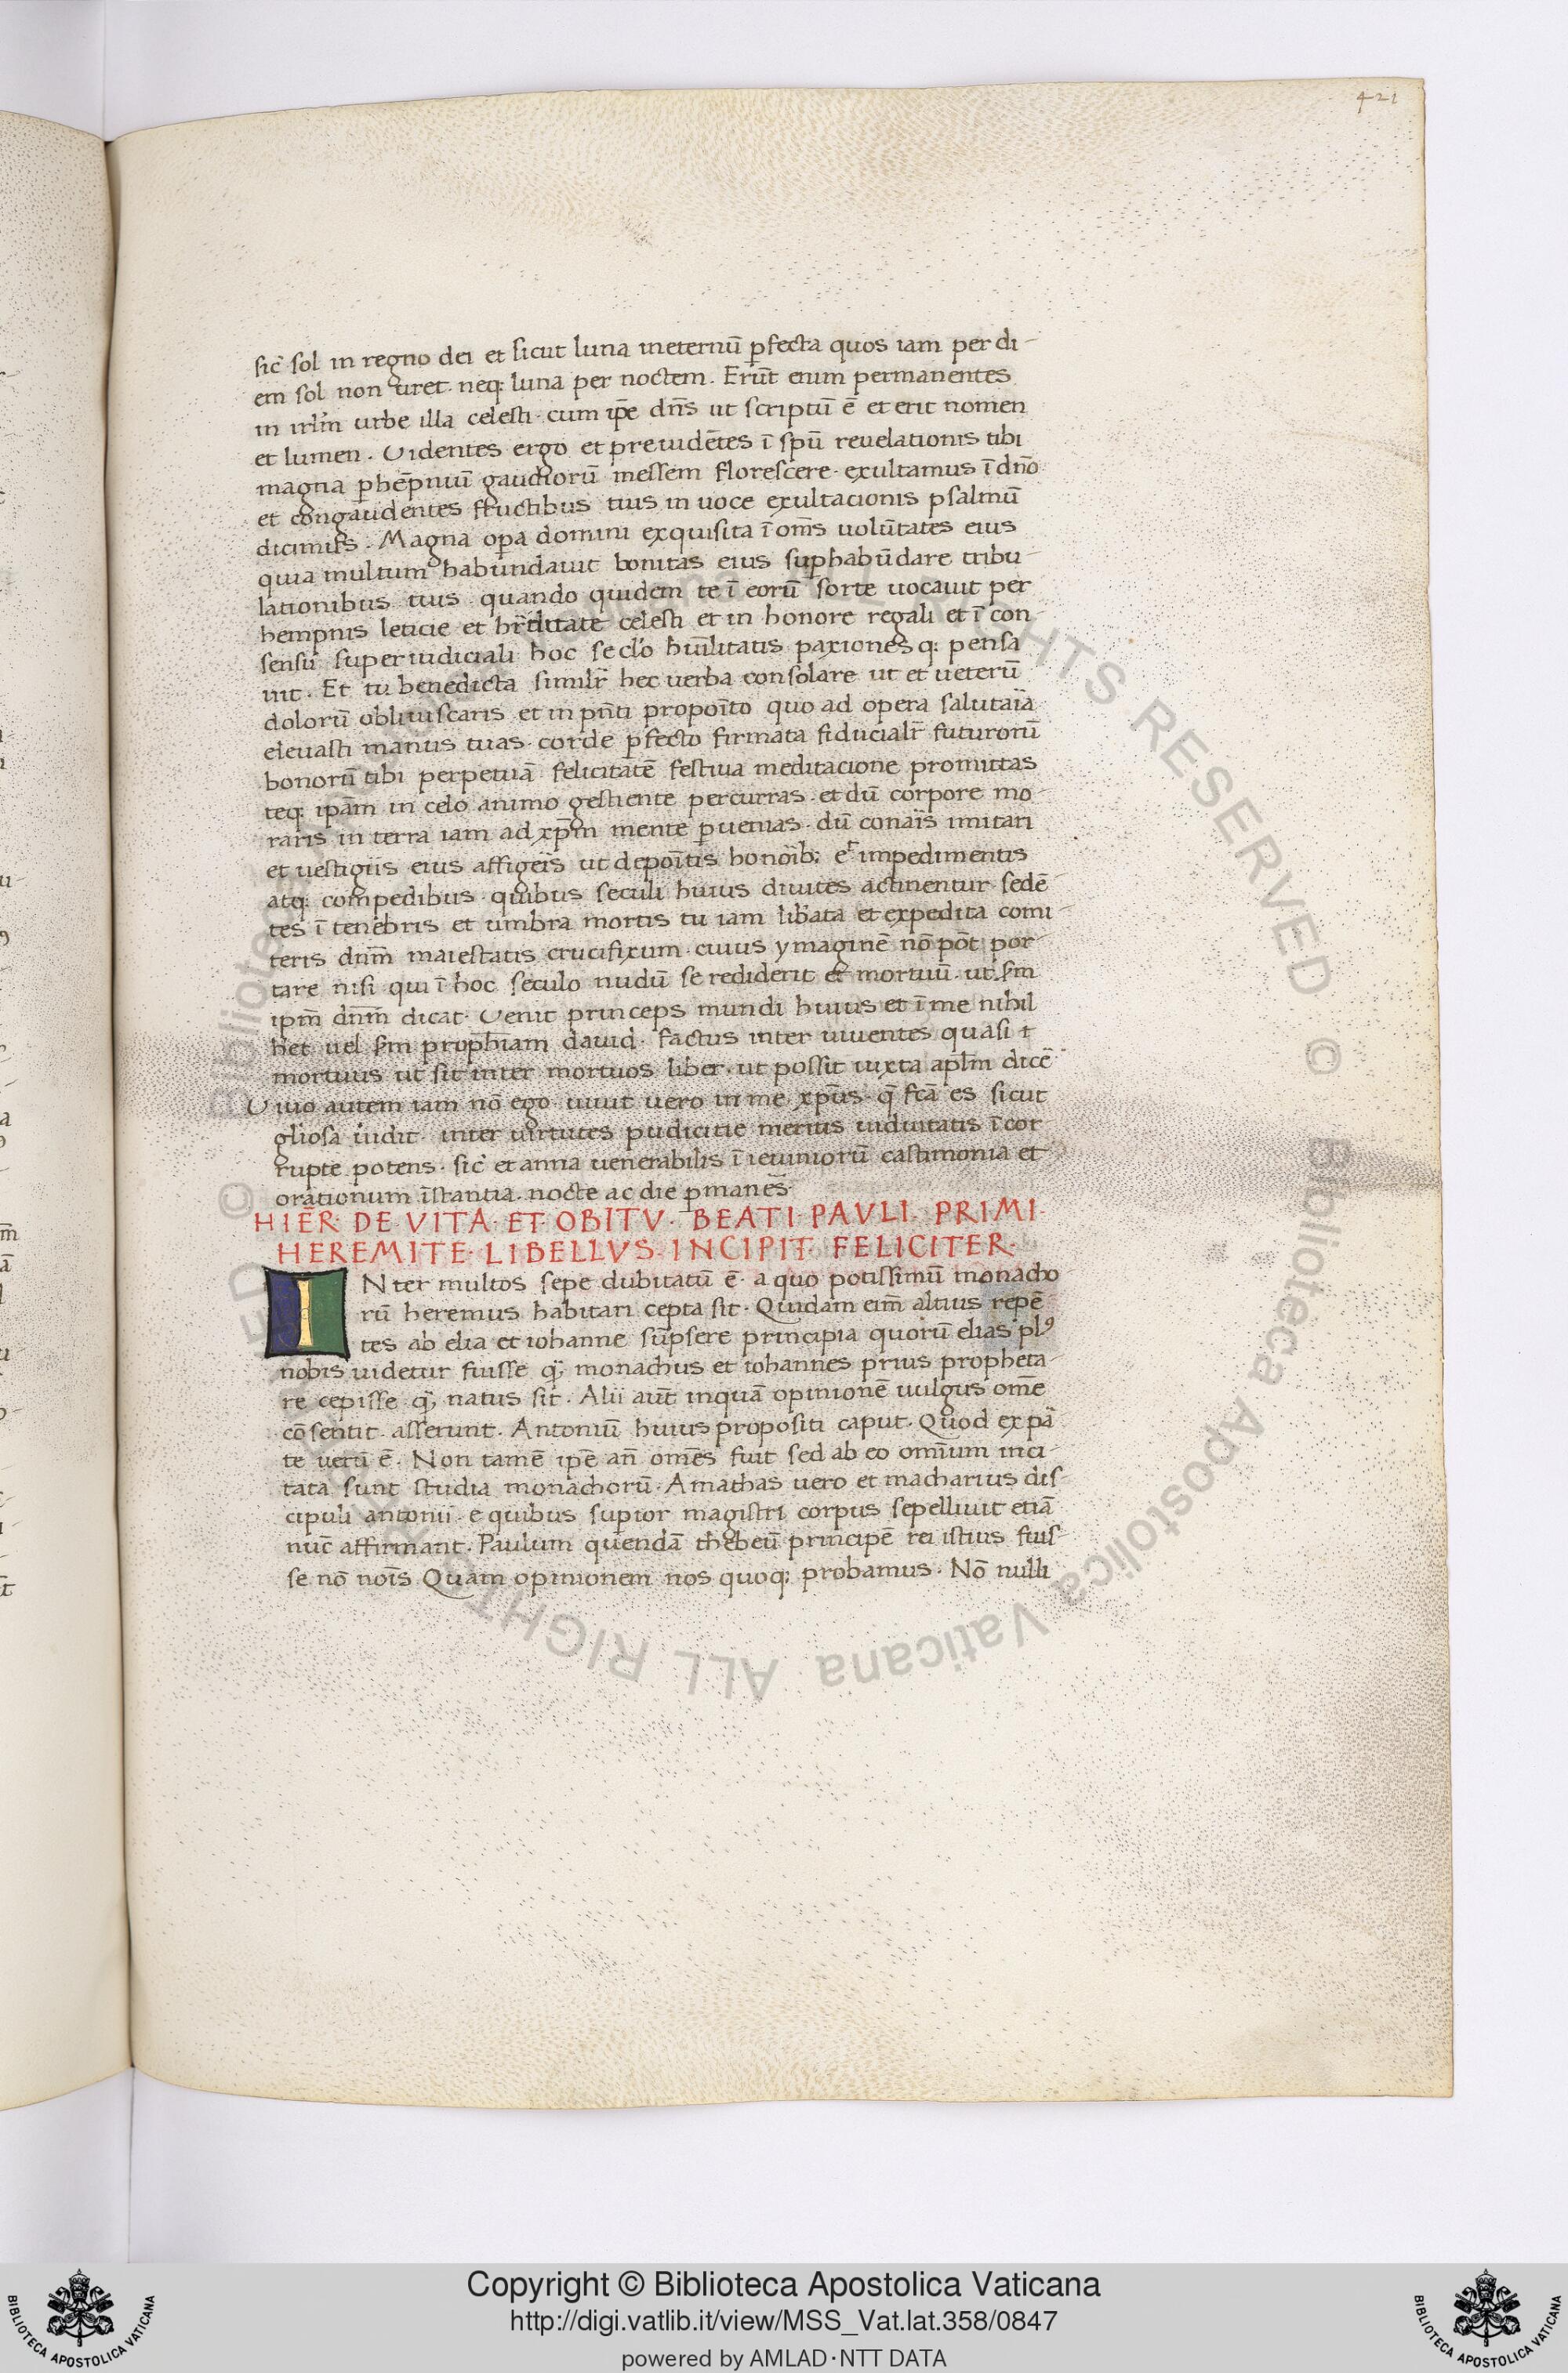 421
sic̄ sol in regno dei et sicut luna ineternū ꝑfecta quos iam per di-
em sol non uret. neq; luna per noctem. Erūt enim permanentes
in irlm̄ urbe illa celesti. cum ip̄e dn̄s ut scriptū ē et erit nomen
et lumen. Uidentes ergo et preuidētes ī spū reuelationis tibi
magna ꝑhēpniū gaudiorū messem florescere. exultamus ī dn̄o
et congaudentes fructibus tuis in uoce exultacionis psalmū
dicimus. Magna oꝑa domini exquisita ī om̄s uolūtates eius
quia multum habundauit bonitas eius suꝑhabūdare tribu-
lationibus tuis. quando quidem te ī eorū sorte uocauit per
hempnis leticie et hr̄ditate celesti et in honore regali et ī con-
sensu superiudiciali hoc se clō hūilitatis paxiones q; pensa
uit. Et tu benedicta similr̄ hec uerba consolare ut et ueterū
dolorū obliuiscaris et in pn̄ti propoīto quo ad opera salutaīa
eleuasti manus tuas. corde ꝑfecto firmata fiducialr̄ futurorū
bonorū tibi perpetuā felicitatē festiua meditacione promittas
teq; ipām in celo animo gestiente percurras. et dū corpore mo-
raris in terra iam ad xp̄m mente ꝑuenias. dū conaīs imitari
et uestigiis eius affigeīs ut depoītis honoīb; et impedimentis
atq; compedibus. quibus seculi huius diuites actinentur. sedē-
tes ī tenebris et umbra mortis tu iam libata et expedita comi-
teris dnm̄ maiestatis crucifixum. cuius ymaginē nō pōt por-
tare nisi qui ī hoc seculo nudū se rediderit et mortuū. ut sm̄
ipm̄ dnm̄ dicat. Uenit princeps mundi huius et ī me nihil
het uel sm̄ proph̄iam dauid. factus inter uiuentes quasi ī
mortuus ut sit inter mortuos liber. ut possit iuxta aplm̄ dicē
Uiuo autem iam nō ego. uiuit uero in me xp̄us. q̄ fc̄ā es sicut
gliosa iudit. inter uirtutes pudicitie meritis uiduitatis ī cor
rupte potens. sic̄ et anna uenerabilis ī ieiuniorū castimonia et
orationum īstantia. nocte ac die ꝑmanēs.
HIER̄. DE. VITA. ET. OBITV. BEATI. PAVLI. PRIMI.
HEREMITE. LIBELLVS. INCIPIT. FELICITER.
INter multos sepe dubitatū ē. a quo potissimū monacho
rū heremus habitari cepta sit. Quidam eim̄ altius repē
tes ab elia et iohanne sūpsere principia quorū elias plꝰ
nobis uidetur fuisse q̄; monachus et iohannes prius propheta-
re cepisse q̄; natus sit. Alii aut̄ inquā opinionē uulgus om̄e
cō sentit. asserunt. Antoniū huius propositi caput. Quod ex pā
te uerū ē. Non tamē ip̄e an̄ om̄es fuit sed ab eo omīum inci-
tata sunt studia monachorū. Amathas uero et macharius dis-
cipuli antonii. e quibus supior magistri corpus sepelliuit etiā
nuc̄ affirmant. Paulum quendā thebeū principē rei istius fuis-
se nō noīs Quam opinionem nos quoq; probamus. Nō nulli
Copyright © Biblioteca Apostolica Vaticana
http://digi.vatlib.it/view/MSS_Vat.lat.358/0847
powered by AMLAD·NTT DATA
BIBLIOTECA APOSTOLICA VATICANA
BIBLIOTECA APOSTOLICA VATICANA